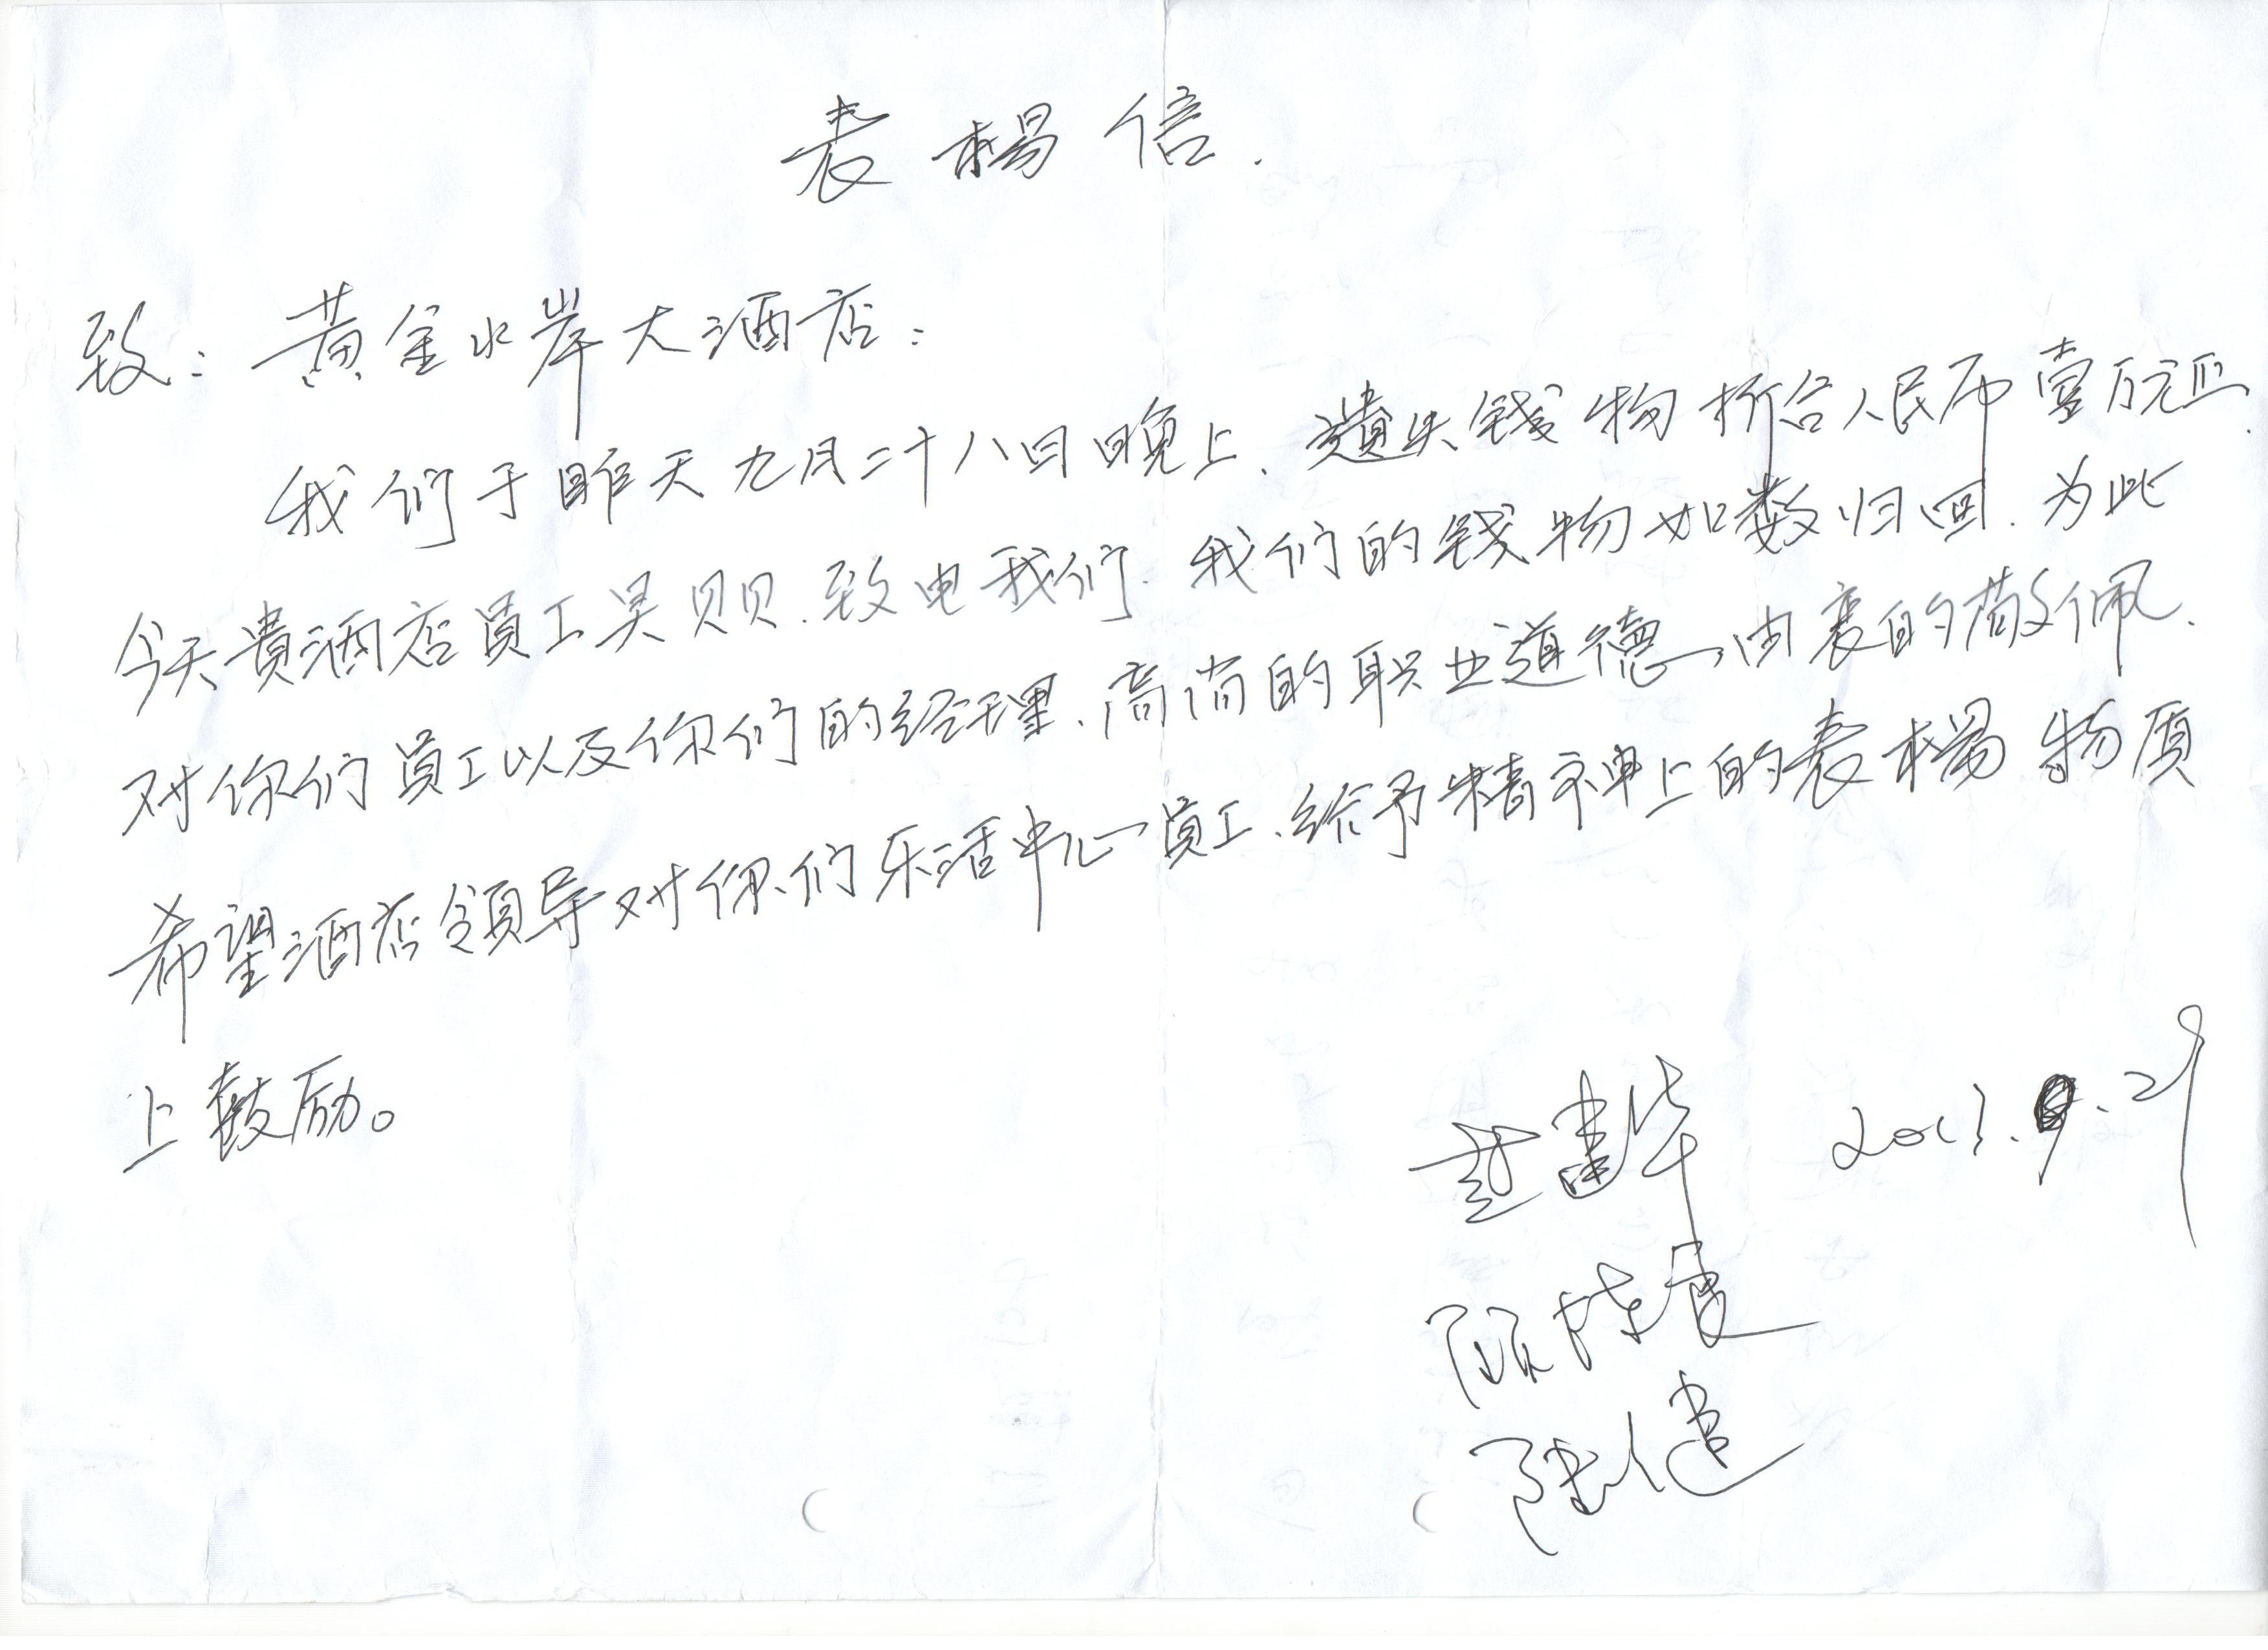 表楊信.
致：黄金水岸大酒店：
我们于昨天九月二十八日晚上、遗失钱物折合人民币壹万元正.
今天贵酒店員工吴贝贝、致电我们.我们的钱物如数归回.为此
对你们員工以及你们的经理、高尚的职业道德、由衷的敬佩.
希望酒店領导对你们乐活中心員工、给予精神上的表楊物质
上鼓励。
2013.9.29
陆健